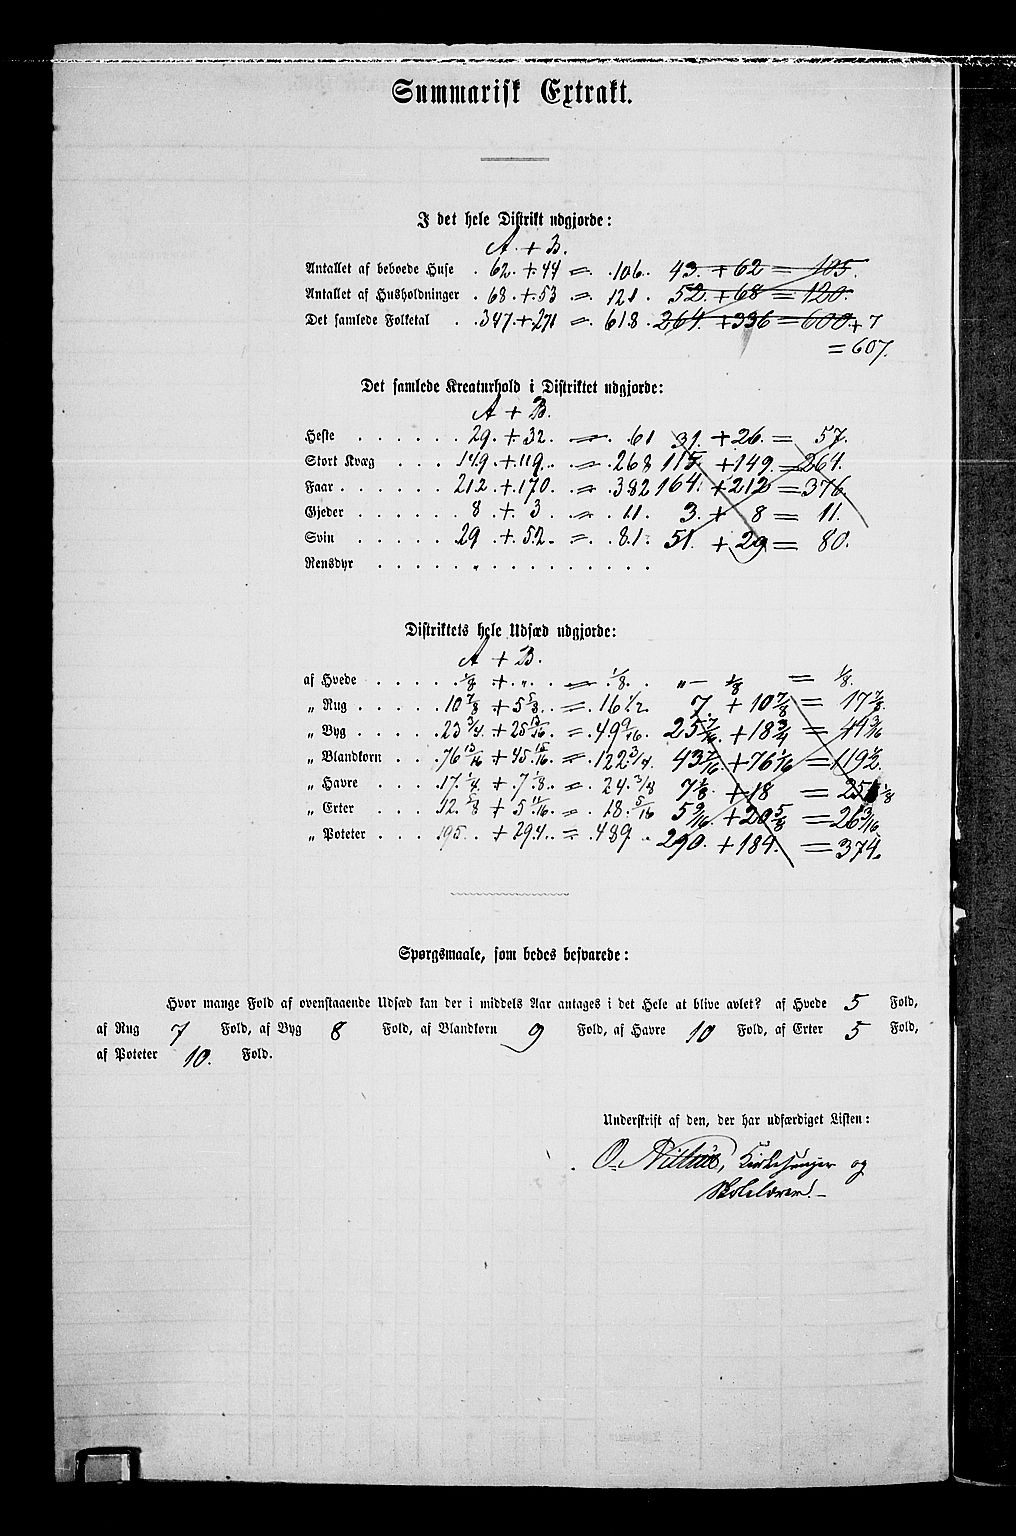 Summarisk Extrakt.
I det hele Distrikt udgjorde:
A. + B.
Antallet af beboede Huse . 62. + 44 = . 106. 43. + 62 = 105.
Antallet af Husholdninger . 68. + 53 = 121. 52. + 68 = 120.
Det samlede Folketal . . 347. + 271 = 618. 264. + 336 = 600 + 7
= 607.
Det samlede Kreaturhold i Distriktet udgjorde:
A + B.
Heste . . . . . . 29. + 32. = . 61 31. + 26. = 57.
Stort Kvæg . . . 149. + 119. . = . 268 115. + 149. = 264.
Faar . . . . . . 212. + 170. . = . 382 164. + 212 = 376.
Gjeder . . . . . . 8. + 3. . = . 11. 3. + 8 = 11.
Svin . . . . . 29. + 52. . = . 81. 51. + 29 = 80.
Rensdyr . . . . . „ . . . . . . . . .
Distriktets hele Udsæd udgjorde:
A + B.
af Hvede . . . . 1/8 + „ . . = . 1/8. „ — 1/8 = 1/8.
„ Rug . . . . . 10 7/8 + 5 5/8. = . 16 1/2 7. + 10 7/8 = 17 7/8.
„ Byg . . . . 23 3/4. + 25 13/16. = . 49 9/16. 25 7/16. + 18 3/4 = 44 3/16
„ Blandkorn . . . 76 13/16 + 45 15/16. = . 122 3/4. 43 7/16. + 76 1/16 = 119 1/2.
„ Havre . . . . 17. 1/4 + 7 1/8. . = . 24. 3/8 7 1/8. + 18 = 25 1/8
„ Erter . . . . 12. 5/8 + 5 11/16. . = . 18. 5/16 5 9/16. + 20 5/8 = 26 3/16
„ Poteter . . . 195. . + 294. . = . 489. 290. + 184. = 374.
Spørgsmaale, som bedes besvarede:
Hvor mange Fold af ovenstaaende Udsæd kan der i middels Aar antages i det Hele at blive avlet? af Hvede 5 Fold,
af Rug 7 Fold, af Byg 8 Fold, af Blandkorn 9 Fold, af Havre 10 Fold, af Erter 5 Fold,
af Poteter 10. Fold.
Underskrift af den, der har udfærdiget Listen:
O. Kirkesanger og
Skolelærer.